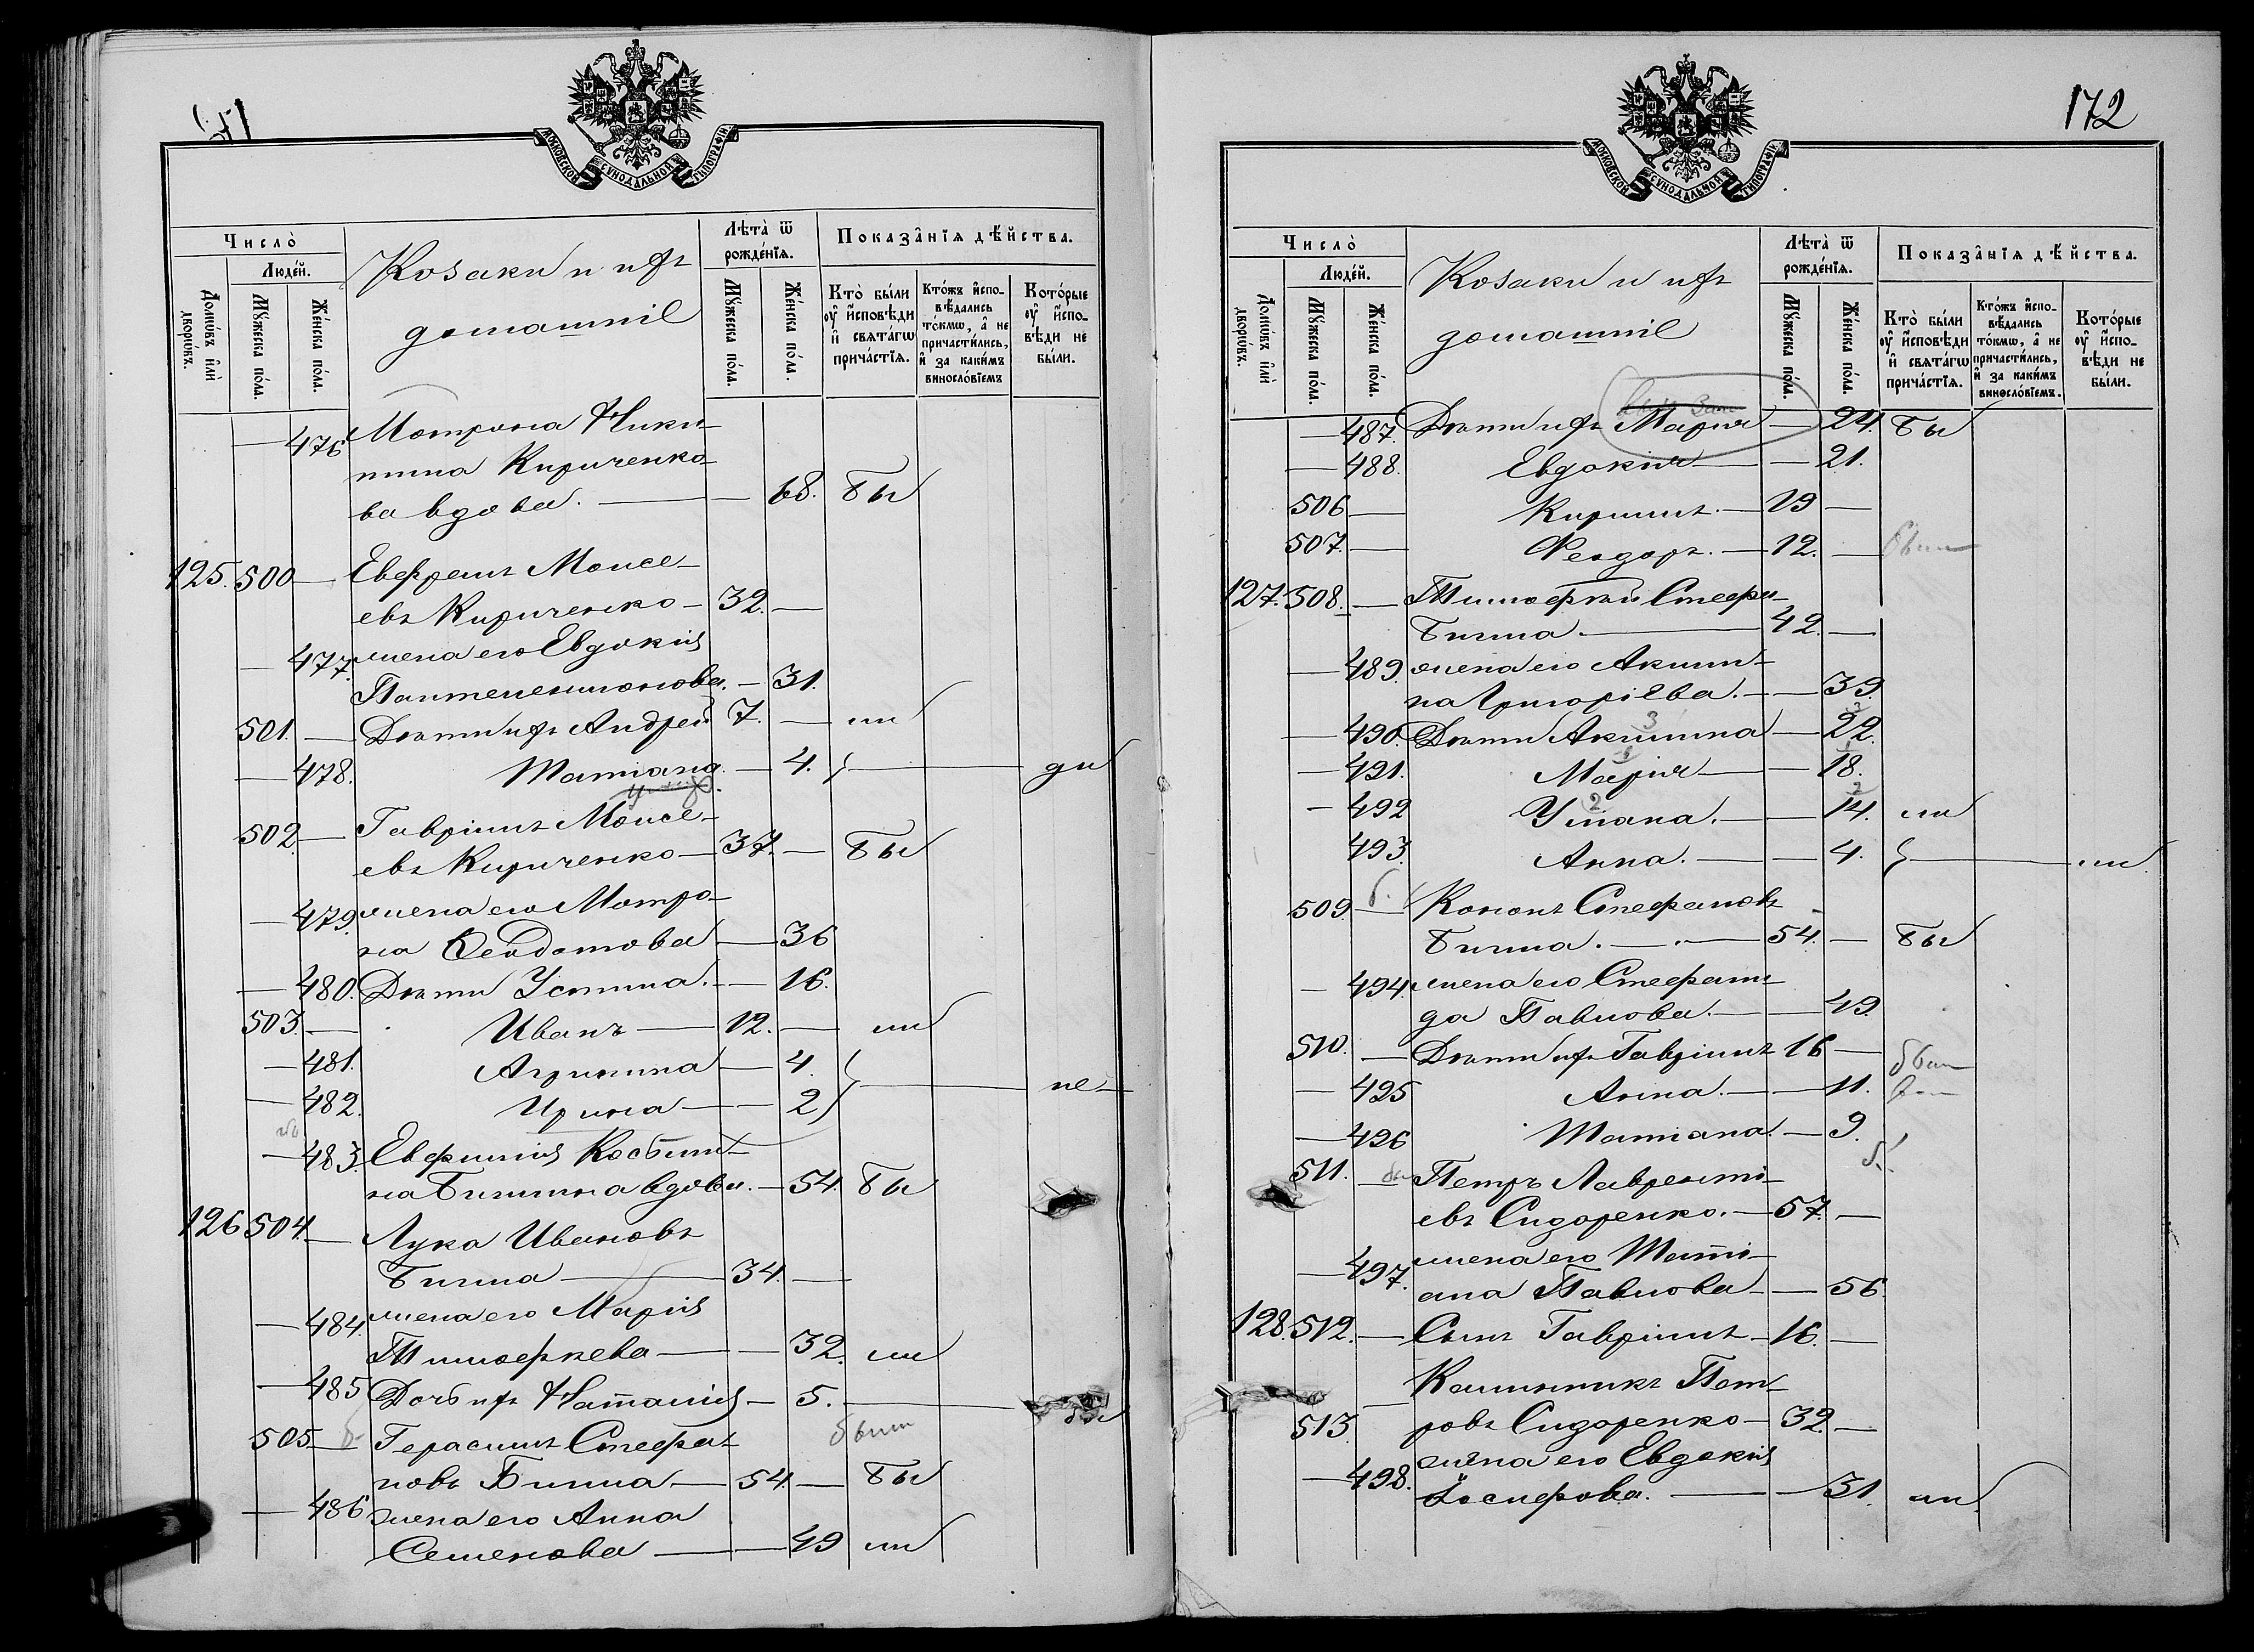 МОСКОВСКОЙ СѴНОДАЛЬНОЙ ТИПОГРАФІИ.
Число̀
Людей.
Домѡвъ и҆лѝ дворѡвъ.
Мꙋжеска по́ла.
Же́нска по́ла.
Козаки и ихъ
домашніе
Лѣта̀ ѿ рожде́нїѧ.
Мꙋжеска по́ла.
Же́нска по́ла.
Показа̂нїѧ дѣ́йства.
Кто̀ бы́ли ᲂу҆ и҆сповѣди и҆ свѧта́гѡ прича́стїѧ.
Кто́жъ и҆сповѣдались то́кмѡ, а҆ не причасти́лись, и҆ за каки́мъ винословїемъ
Кото́рые ᲂу҆ и҆сповѣди не бы́ли.
— 476 Мотрона Ники-
тина Кириченко-
ва вдова. — — 68. Бы
125. 500 — Евфремъ Моисе-
евъ Кириченко — 32. —
— 477. жена его Евдокія
Пантелеимонова. — 31.
501. — Дѣти ихъ Андрей 7. — ли
— 478. Татіана. — 4. — ди
502. — Гавріилъ Моисе-
евъ Кириченко — 37. — Бы
— 479. жена его Мотро-
на Феодотова — 36
— 480. Дѣти Устина. — — 16.
503. — Иванъ — 12. — ли
— 481. Агрипина — 4.
— 482. Ирина — — 2 — не —
— 483. Евфимія Косьми-
на Бигмина вдова. — 54. Бы
126 504. — Лука Ивановъ
Бигма — 34. —
— 484. жена его Марія
Тимофеева — — 32. ли
— 485 Дочь ихъ Наталія — 5. — бы
505 — б. Герасимъ Стефа- были
новъ Бигма — 54. — Бы
— 486 жена его Анна
Семенова — — 49 ли
172
МОСКОВСКОЙ СѴНОДАЛЬНОЙ ТИПОГРАФІИ.
Число̀
Людей.
Домѡвъ и҆лѝ дворѡвъ.
Мꙋжеска по́ла.
Же́нска по́ла.
Козаки и ихъ
домашніе
Лѣта̀ ѿ рожде́нїѧ.
Мꙋжеска по́ла.
Же́нска по́ла.
Показа̂нїѧ дѣ́йства.
Кто̀ бы́ли ᲂу҆ и҆сповѣди и҆ свѧта́гѡ прича́стїѧ.
Кто́жъ и҆сповѣдались то́кмѡ, а҆ не причасти́лись, и҆ за каки́мъ винословїемъ.
Кото́рые ᲂу҆ и҆сповѣди не бы́ли.
— 487. Дѣти ихъ Марія — 24. Бы
— 488. Евдокія — — 21.
506 — Кирилъ. — 19 —
507. — Феодоръ. — 12. —
127. 508. — Тимофей Стеф.
Бигма — 42. —
— 489. жена его Акили-
на Григоріева. — — 39.
— 490. Дѣти Акилина 3 — 22. 3
— 491. Марія 1 — — 18. 1
— 492 Уліана. 2 — 14. 2 ли
493. Анна. — — 4. — ли.
509. — б. Кононъ Стефановъ
Бигма. — 54. — Бы
— 494. жена его Стефани-
да Павлова. — — 49.
510. — Дѣти ихъ Гавріилъ 16 —
— 495 Анна. — — 11.
— 496 Татіана. — 9.
511. — Петръ Лаврентi-
евъ Сидоренко. — 57. —
— 497. жена его Таті-
ана Павлова — — 56.
128. 512. — Сынъ Гавріилъ — 16. —
Калиникъ Пет-
513. ровъ Сидоренко — 32. —
— 498. жена его Евдокія
Іосифова. — — 31. ли